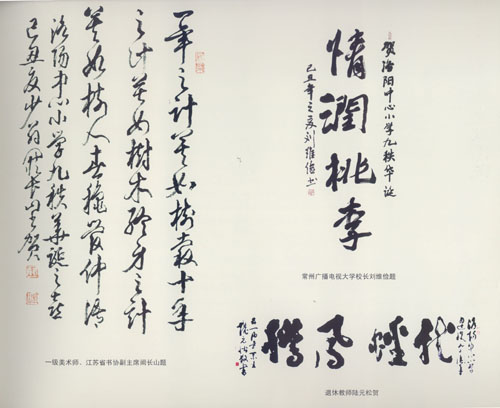 一年之计莫如樹榖十年
之计莫如樹木终身之计
莫如樹人春穐管仲语
洛阳中心小学九秩華诞之
己丑夏
贺
贺洛阳中心小学九秩华诞
情润桃李
己丑年之夏刘维俭书
常州广播电视大学校长刘维俭题
龙蟠鳳騰
一级美术师、江苏省书协副主席阚长山题
退休教师陆元松贺